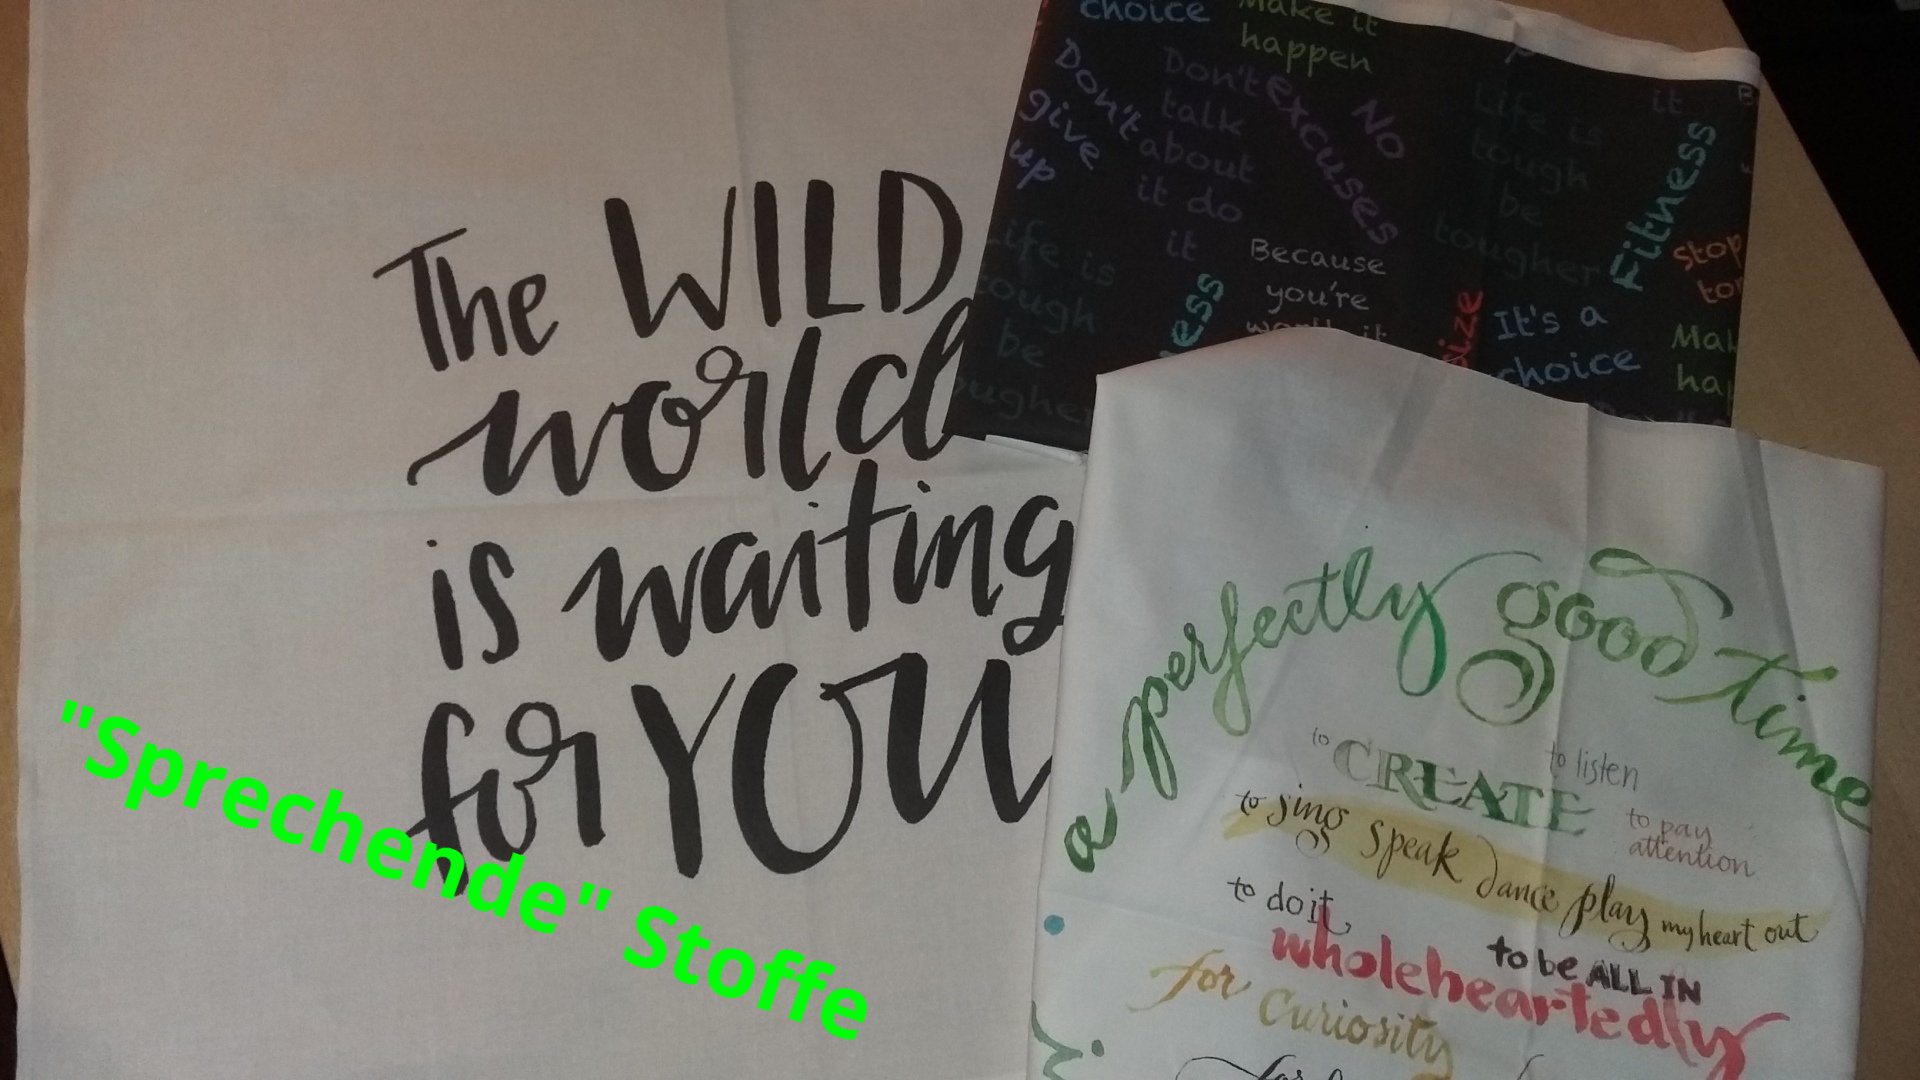 The WILD
world
is waiting
for YOU
"Sprechende" Stoffe
choice
Make it
happen
Don't
give
up
Don't
talk
about
it do
it
No
excuses
Life is
tough
be
tougher
it
Fitness
Stop
Life is
tough
be
Because
you're
worth it
It's a
choice
a perfectly good time
to CREATE
to listen
to sing speak dance play my heart out
to pay
attention
to do it
wholeheartedly
to be ALL IN
for Curiosity